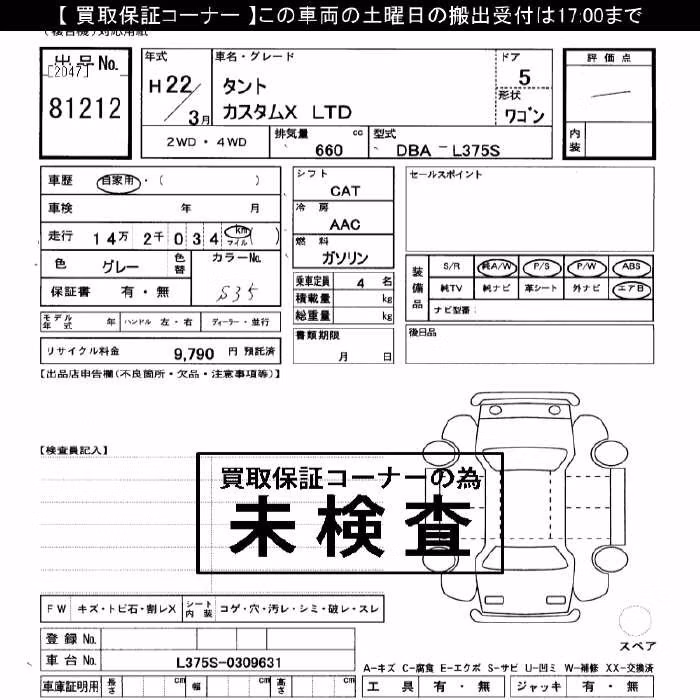 【 買取保証コーナー 】この車両の土曜日の搬出受付は17:00まで
出品No.
[2047]
81212
年式
H22/3月
車名・グレード
タント
カスタムX LTD
ドア
5
形状
ワゴン
評価点
内装
2WD・4WD
排気量 660 cc
型式 DBA-L375S
車歴 自家用・( )
車検 年 月
走行 14万 2千 034 km マイル ( )
色 グレー
色替
カラーNo.
S35
保証書 有・無
シフト
CAT
冷房
AAC
燃料
ガソリン
乗車定員 4 名
積載量 kg
総重量 kg
書類期限
月 日
セールスポイント
装備品
S/R 純A/W P/S P/W ABS
純TV 純ナビ 革シート 外ナビ エアB
ナビ型番:
後日品
モデル年式 年 ハンドル 左・右 ディーラー・並行
リサイクル料金 9,790 円 預託済
【出品店申告欄(不良箇所・欠品・注意事項等)】
【検査員記入】
買取保証コーナーの為
未検査
FW キズ・トビ石・割レX シート内装 コゲ・穴・汚レ・シミ・破レ・スレ
登録No.
車台No. L375S-0309631
車庫証明用 長さ cm 幅 cm 高さ cm
スペア
A-キズ C-腐食 E-エクボ S-サビ U-凹ミ W-補修 XX-交換済
工具 有・無 ジャッキ 有・無